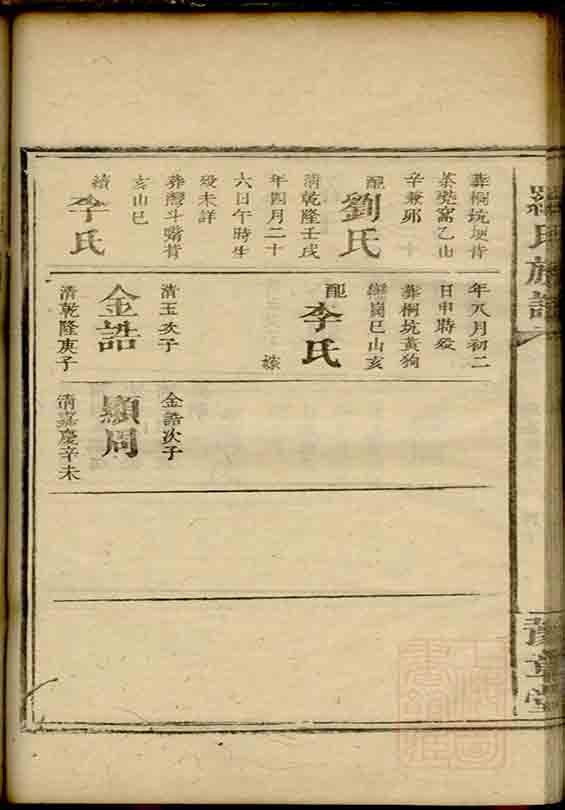 羅氏族譜
豫章堂
葬桐坑埂背
茶蔸窩乙山
辛兼卯
配
劉氏
清乾隆壬戌
年四月二十
六日午時生
歿未詳
葬灣斗嘴背
亥山巳
續
李氏
年八月初二
日申時歿
葬桐坑黃狗
巒崗巳山亥
配
李氏
嫁
清玉次子
金誥
清乾隆庚子
金誥次子
顯周
清嘉慶辛未